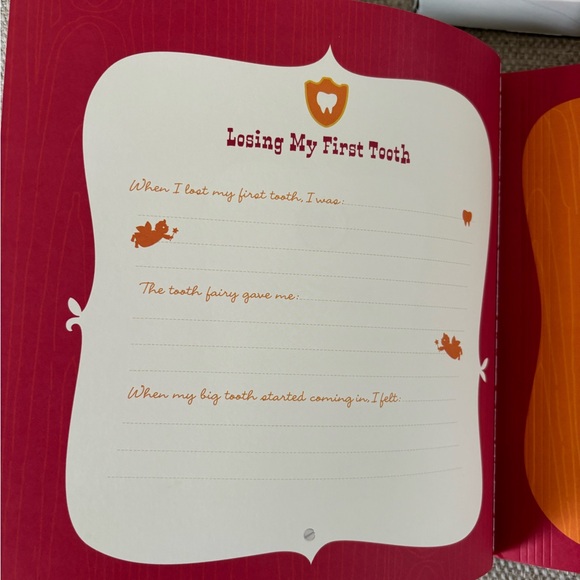 Losing My First Tooth
When I lost my first tooth, I was:
The tooth fairy gave me:
When my big tooth started coming in, I felt: